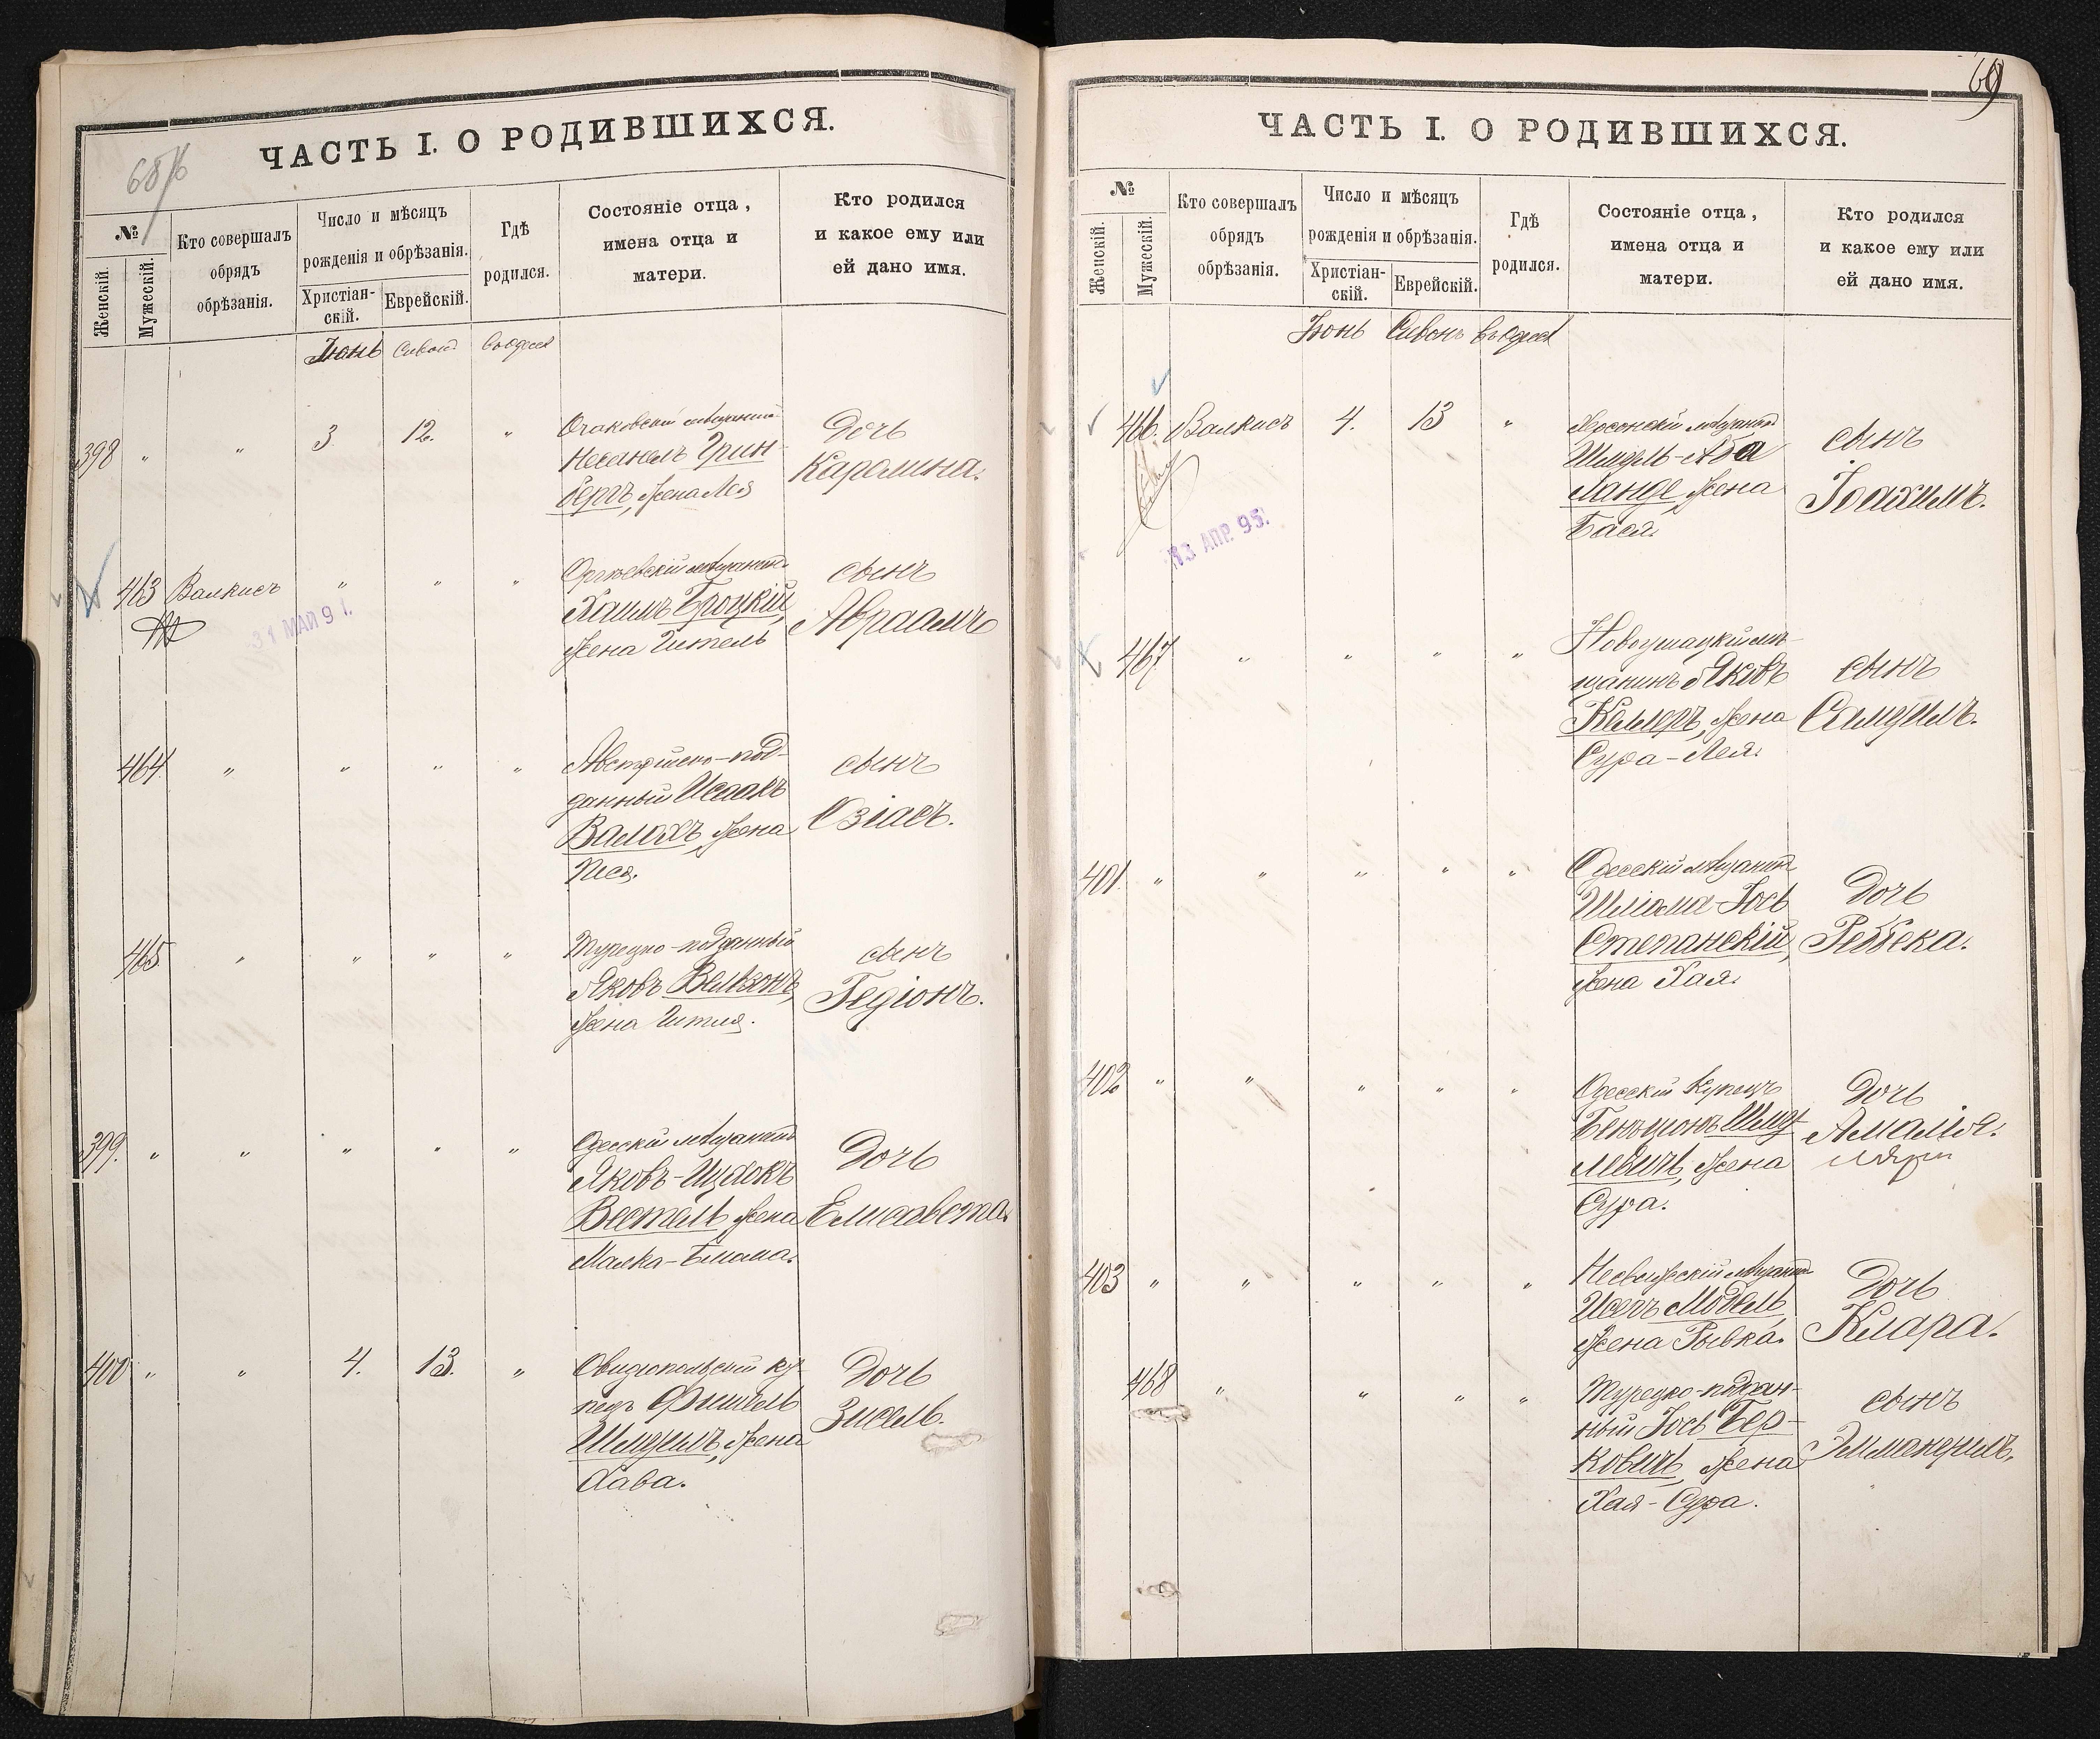 68/б
ЧАСТЬ I. О РОДИВШИХСЯ.
№
Женскій.
Мужескій.
Кто совершалъ
обрядъ
обрѣзанія.
Число и мѣсяцъ
рожденія и обрѣзанія.
Христіан-
скій.
Еврейскій.
Гдѣ
родился.
Состояніе отца,
имена отца и
матери.
Кто родился
и какое ему или
ей дано имя.
Іюнь Сивонъ Въ Одессѣ
398 " " 3. 12. "
Очаковскій мѣщанинъ
Несанель Грин-
бергъ, жена Лея
Дочь
Каролина.
463 Валкисъ " " "
31 МАЙ 9 1.
Оргѣевскій мѣщанинъ
Хаимъ Броцкій,
жена Гитель
сынъ
Авраамъ
464 " " " "
Австрійско-под-
данный Исаакъ
Валахъ, жена
Песя.
сынъ
Озіасъ.
465 " " " "
Турецко-подданный
Яковъ Вельзонъ,
жена Гитля.
сынъ
Гедіонъ.
399. " " " " "
Одесскій мѣщанинъ
Яковъ-Ицхокъ
Вестель, жена
Малка-Блюма.
Дочь
Елисавета.
400 " " 4. 13. "
Овидіопольскій ку-
пецъ Фишель
Шмуилъ, жена
Хава.
Дочь
Зисель.
69
ЧАСТЬ I. О РОДИВШИХСЯ.
№
Женскій.
Мужескій.
Кто совершалъ
обрядъ
обрѣзанія.
Число и мѣсяцъ
рожденія и обрѣзанія.
Христіан-
скій.
Еврейскій.
Гдѣ
родился.
Состояніе отца,
имена отца и
матери.
Кто родился
и какое ему или
ей дано имя.
Іюнь Сивонъ Въ Одессѣ
466. Валкисъ 4. 13 "
13 АПР. 95.
мѣщанинъ
Шмуль-Аба
Ланде, жена
Бася.
сынъ
Іоахимъ.
467 " " " "
Новоушицкій мѣ-
щанинъ Яковъ
Келлеръ, жена
Сура-Лея.
сынъ
Самуилъ.
401. " " " " "
Одесскій мѣщанинъ
Шліома-Іось
Степанскій,
жена Хая.
Дочь
Ребека.
402 " " " " "
Одесскій Купецъ
Бенъционъ Шму-
левичъ, жена
Сура.
Дочь
Амалія.
403 " " " " "
Несвижскій мѣщанинъ
Иосъ Мобель,
жена Рывка.
Дочь
Клара.
468 " " " "
Турецко-поддан-
ный Іось Бер-
ковичъ, жена
Хая-Сура.
сынъ
Эммануилъ.